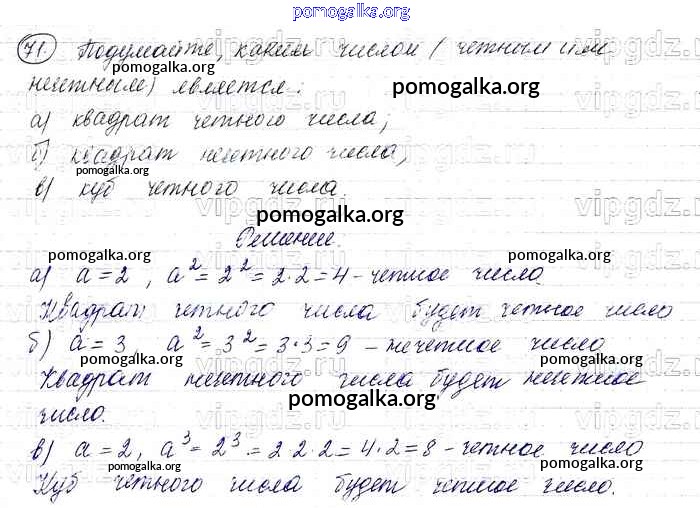 pomogalka.org
71. Подумайте, каким числом (четным или
нечетным) является:
pomogalka.org
pomogalka.org
а) квадрат четного числа;
vipgdz.ru
б) квадрат нечетного числа;
pomogalka.org
в) куб четного числа.
vipgdz.ru
pomogalka.org
Решение.
pomogalka.org
pomogalka.org
а) a = 2, a² = 2² = 2·2 = 4 - четное число.
Квадрат четного числа будет четное число
б) a = 3, a² = 3² = 3·3 = 9 – нечетное число
pomogalka.org
pomogalka.org
Квадрат нечетного числа будет нечетное
pomogalka.org
число.
в) a = 2, a³ = 2³ = 2·2·2 = 4·2 = 8 - четное число
pomogalka.org
pomogalka.org
Куб четного числа будет четное число.